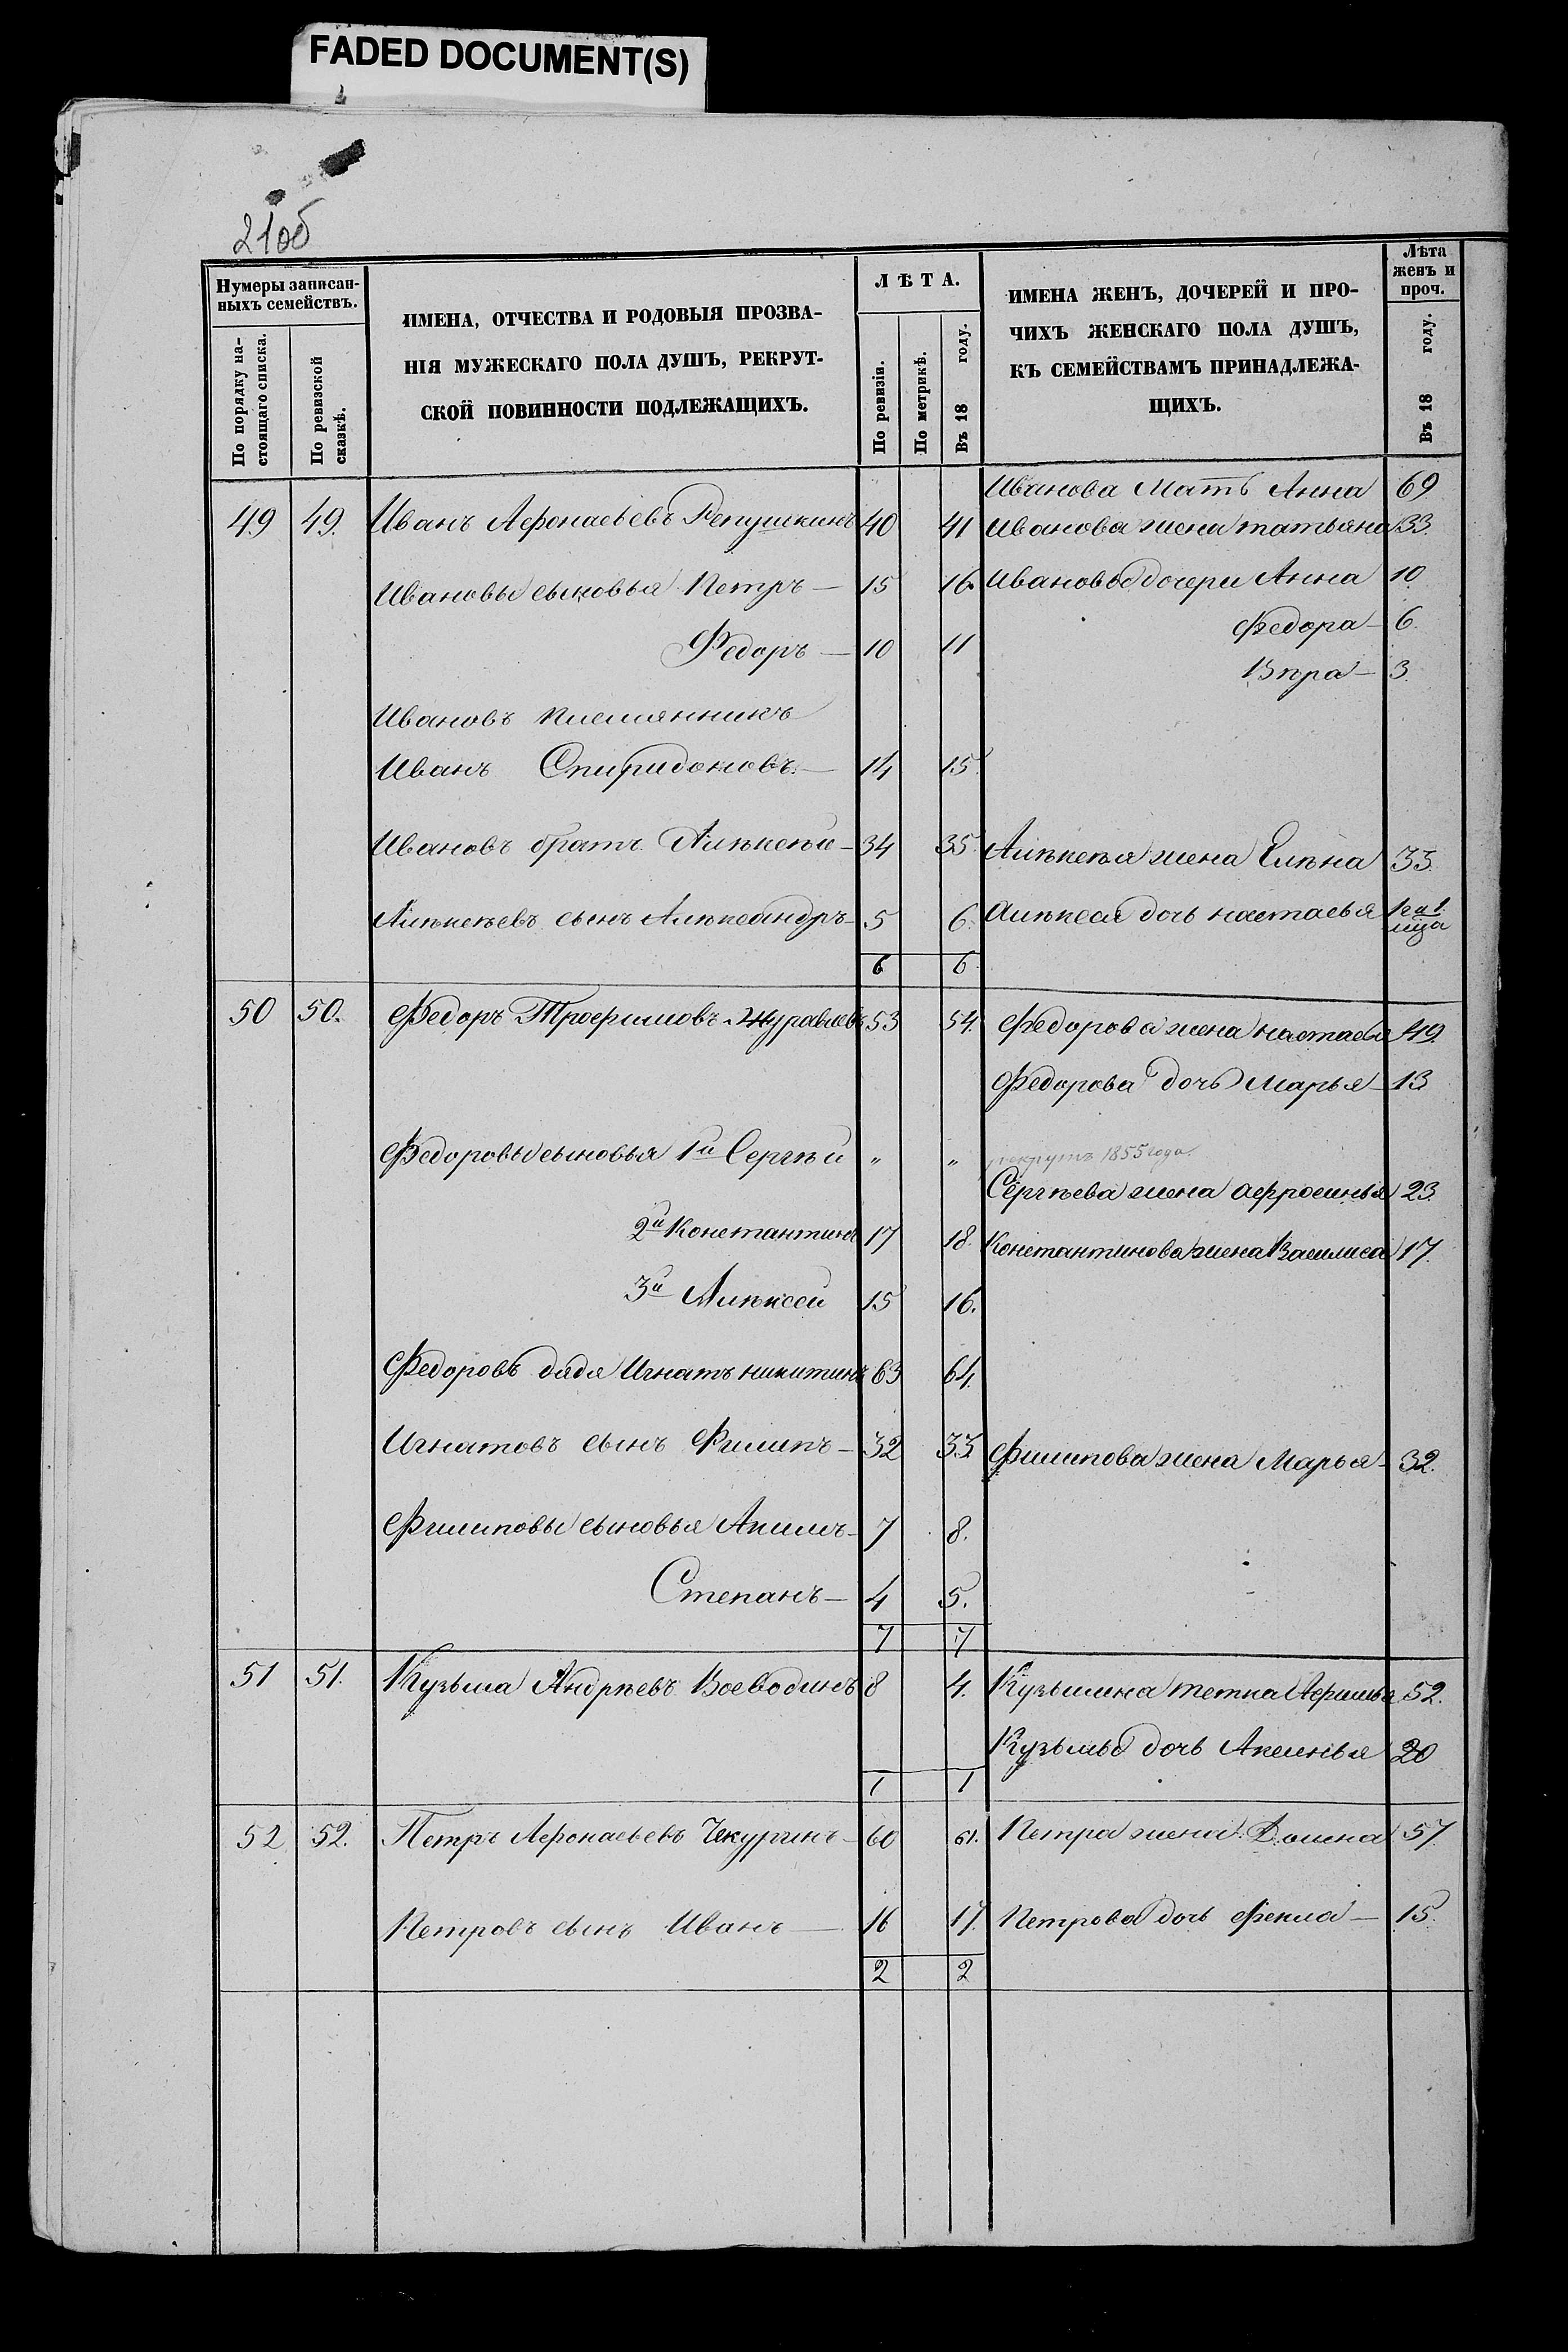 FADED DOCUMENT(S)
21об
Нумеры записан-
ныхъ семействъ.
По порядку на-
стоящаго списка.
По ревизской
сказкѣ.
ИМЕНА, ОТЧЕСТВА И РОДОВЫЯ ПРОЗВА-
НІЯ МУЖЕСКАГО ПОЛА ДУШЪ, РЕКРУТ-
СКОЙ ПОВИННОСТИ ПОДЛЕЖАЩИХЪ.
ЛѢТА.
По ревизіи.
По метрикѣ.
Въ 18 году.
ИМЕНА ЖЕНЪ, ДОЧЕРЕЙ И ПРО-
ЧИХЪ ЖЕНСКАГО ПОЛА ДУШЪ,
КЪ СЕМЕЙСТВАМЪ ПРИНАДЛЕЖА-
ЩИХЪ.
Лѣта
женъ и
проч.
Въ 18 году.
Иванова Мать Анна 69
49 49. Иванъ Афонасьевъ Репушкинъ 40 41 Иванова жена татьяна 33.
Ивановы сыновья Петръ 15 16. Ивановы дочери Анна 10.
Федора 6.
Федоръ 10 11
Вѣра 3.
Ивановъ племянникъ
Иванъ Спиридоновъ. 14 15.
Ивановъ братъ Алѣксѣй 34 35. Алѣксѣя жена Елѣна 33.
Алѣксѣевъ сынъ Алѣксандръ 5 6. Алѣксея дочь настасья
6 6
50 50. Федоръ Трофимовъ Журавлевъ 53 54. Федорова жена настасья 49.
Федорова дочь Марья 13
Федоровы сыновья 1й Сергѣй " " рекрутъ 1855 года.
Сергѣева жена афросинья 23.
2й Константинъ 17 18. Константинова жена Василиса 17.
3й Алѣксей 15 16.
Федоровъ дядя Игнатъ никитинъ 63 64.
Игнатовъ сынъ Филипъ 32 33. Филипова жена Марья 32.
Филиповы сыновья Акимъ 7 8.
Степанъ 4 5.
7 7
51 51. Кузьма Андрѣевъ Воеводинъ 8 4. Кузьмина тетка Афимья 52.
Кузьмы дочь Аксинья 20
1 1
52 52. Петръ Афонасьевъ Чекуринъ 60 61. Петра жена Домна 57
Петровъ сынъ Иванъ 16 17. Петрова дочь Фекла 15.
2 2